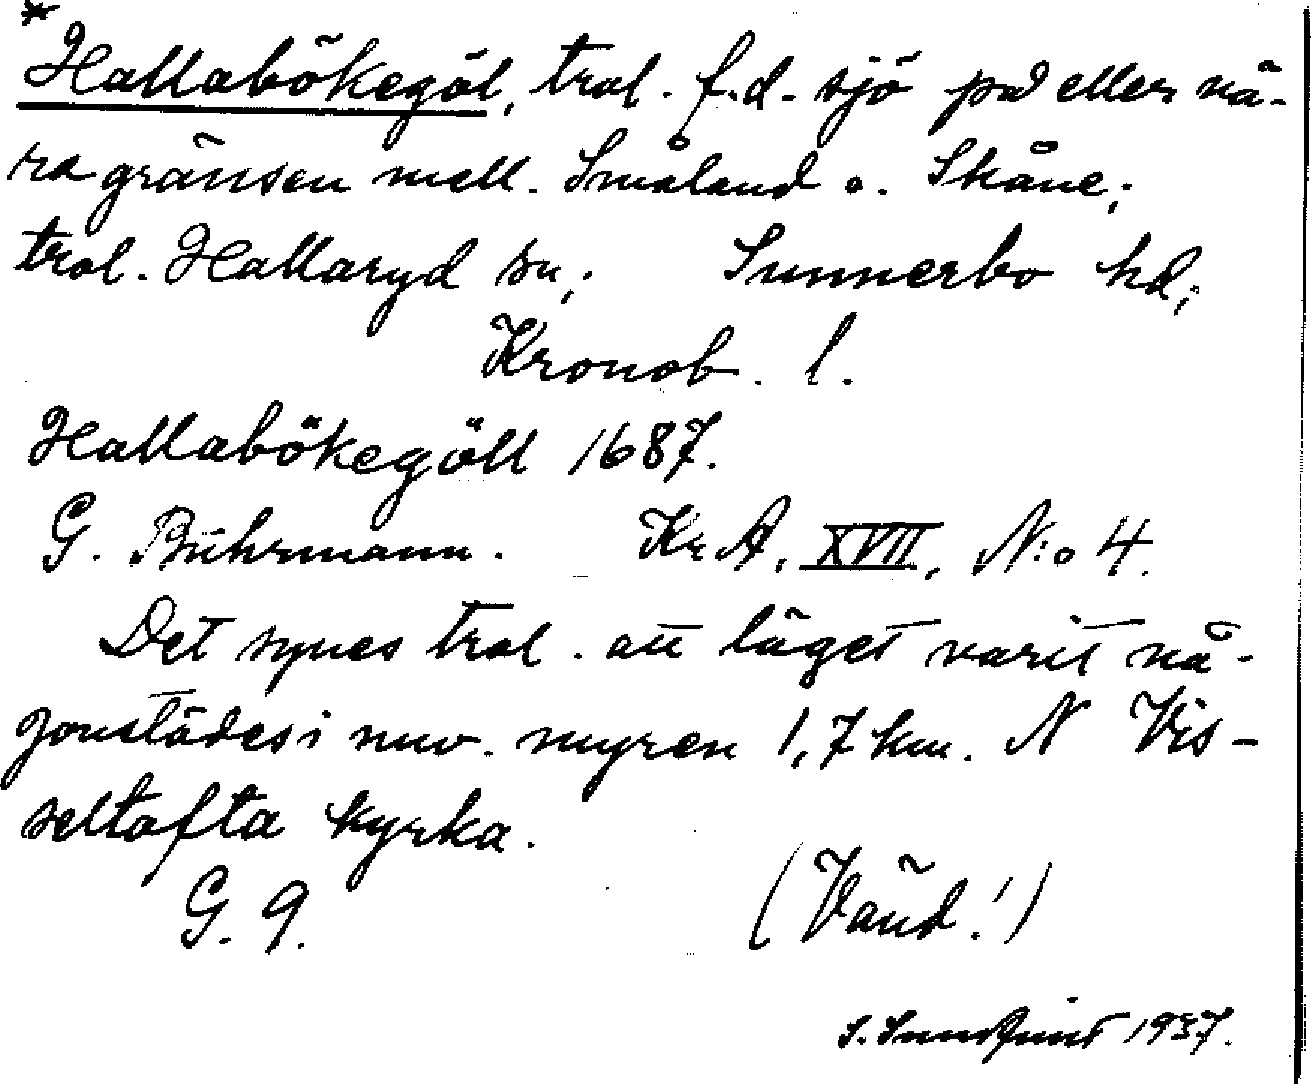 *Hallabökegöl, trol. f.d. sjö på eller nä-
ra gränsen mell. Småland o. Skåne;
trol. Hallaryd sn; Sunnerbo hd;
Kronob. l.
Hallabökegöll 1687.
G. Buhrmann. Kr. A, XVII, N:o 4.
Det synes trol. att läget varit nå-
gonstädes i nuv. myren 1,7 km. N Vis-
seltofta kyrka.
G. 9. (Vänd!)
S. Sundqvist 1937.